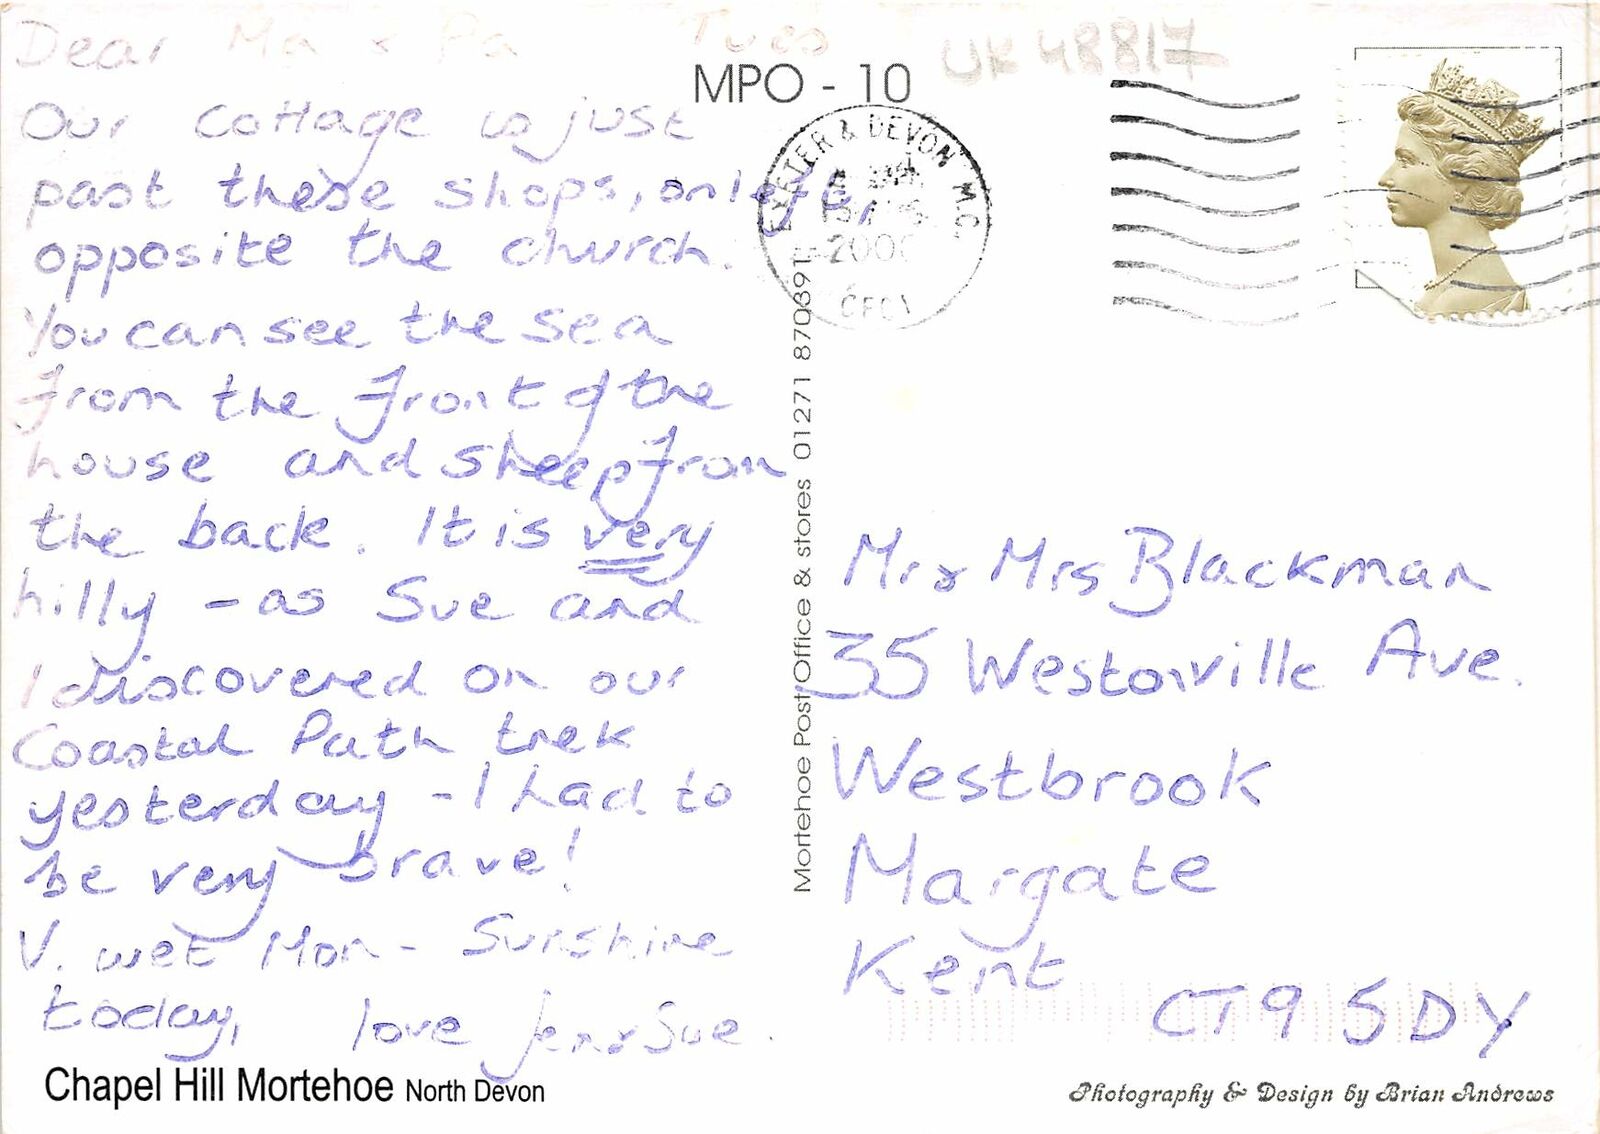 Dear Ma & Pa Tues
Our cottage is just
past these shops, on left,
opposite the church.
You can see the sea
from the front of the
house and sheep from
the back. It is very
hilly - as Sue and
I discovered on our
Coastal Path trek
yesterday - I had to
be very brave!
V. wet Mon - Sunshine
today, love Jen & Sue.
Chapel Hill Mortehoe North Devon
UK 48817
MPO - 10
EXETER & DEVON M.C.
Mortehoe Post Office & stores 01271 870891
Mr & Mrs Blackman
35 Westonville Ave.
Westbrook
Margate
Kent
CT9 5DY
Photography & Design by Brian Andrews